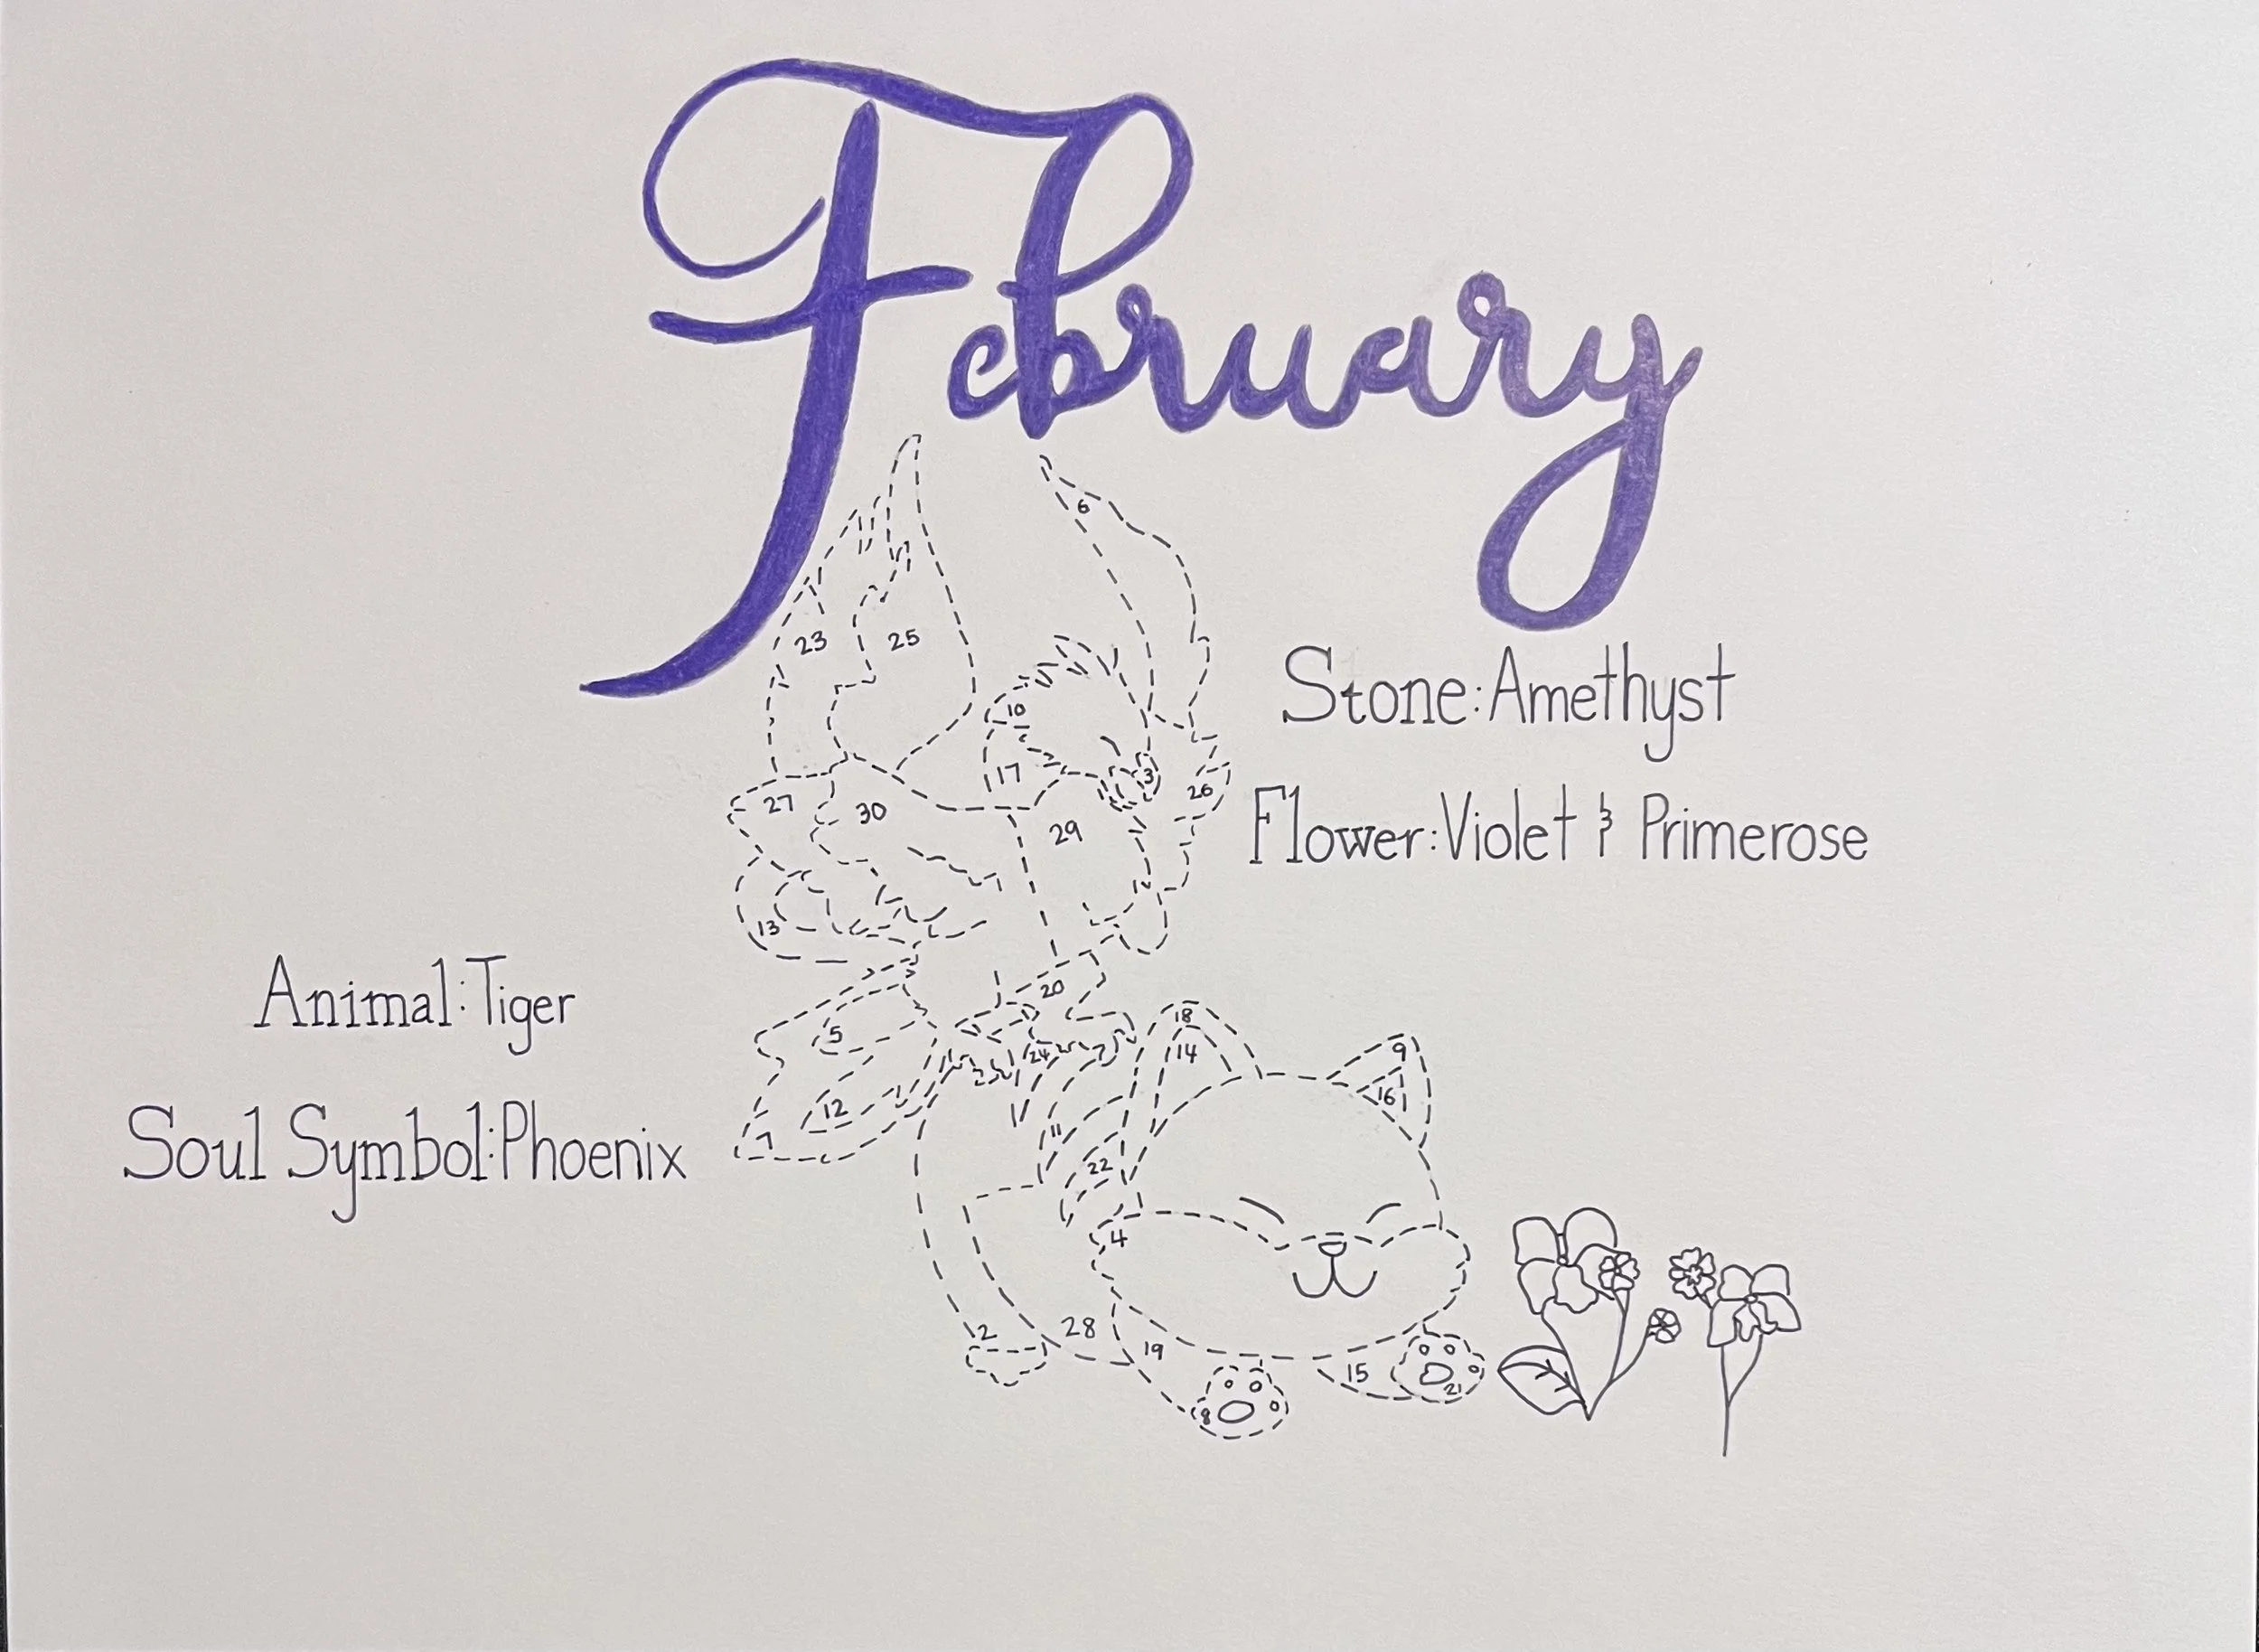 February
6
23 25
Stone:Amethyst
10
17 3 26
27 30 29
Flower:Violet & Primerose
13
Animal:Tiger
20
18
5 24 14 9
16
12
7 11
Soul Symbol:Phoenix
22
4
2 28
19 15
21
8